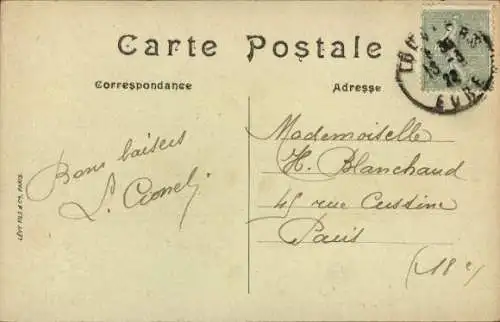 Carte Postale
Correspondance
Adresse
LOUVIERS
EURE
Bons baisers
L.
Mademoiselle
H. Blanchaud
45 rue Custine
Paris
(18e)
LÉVY FILS & Cie, PARIS.